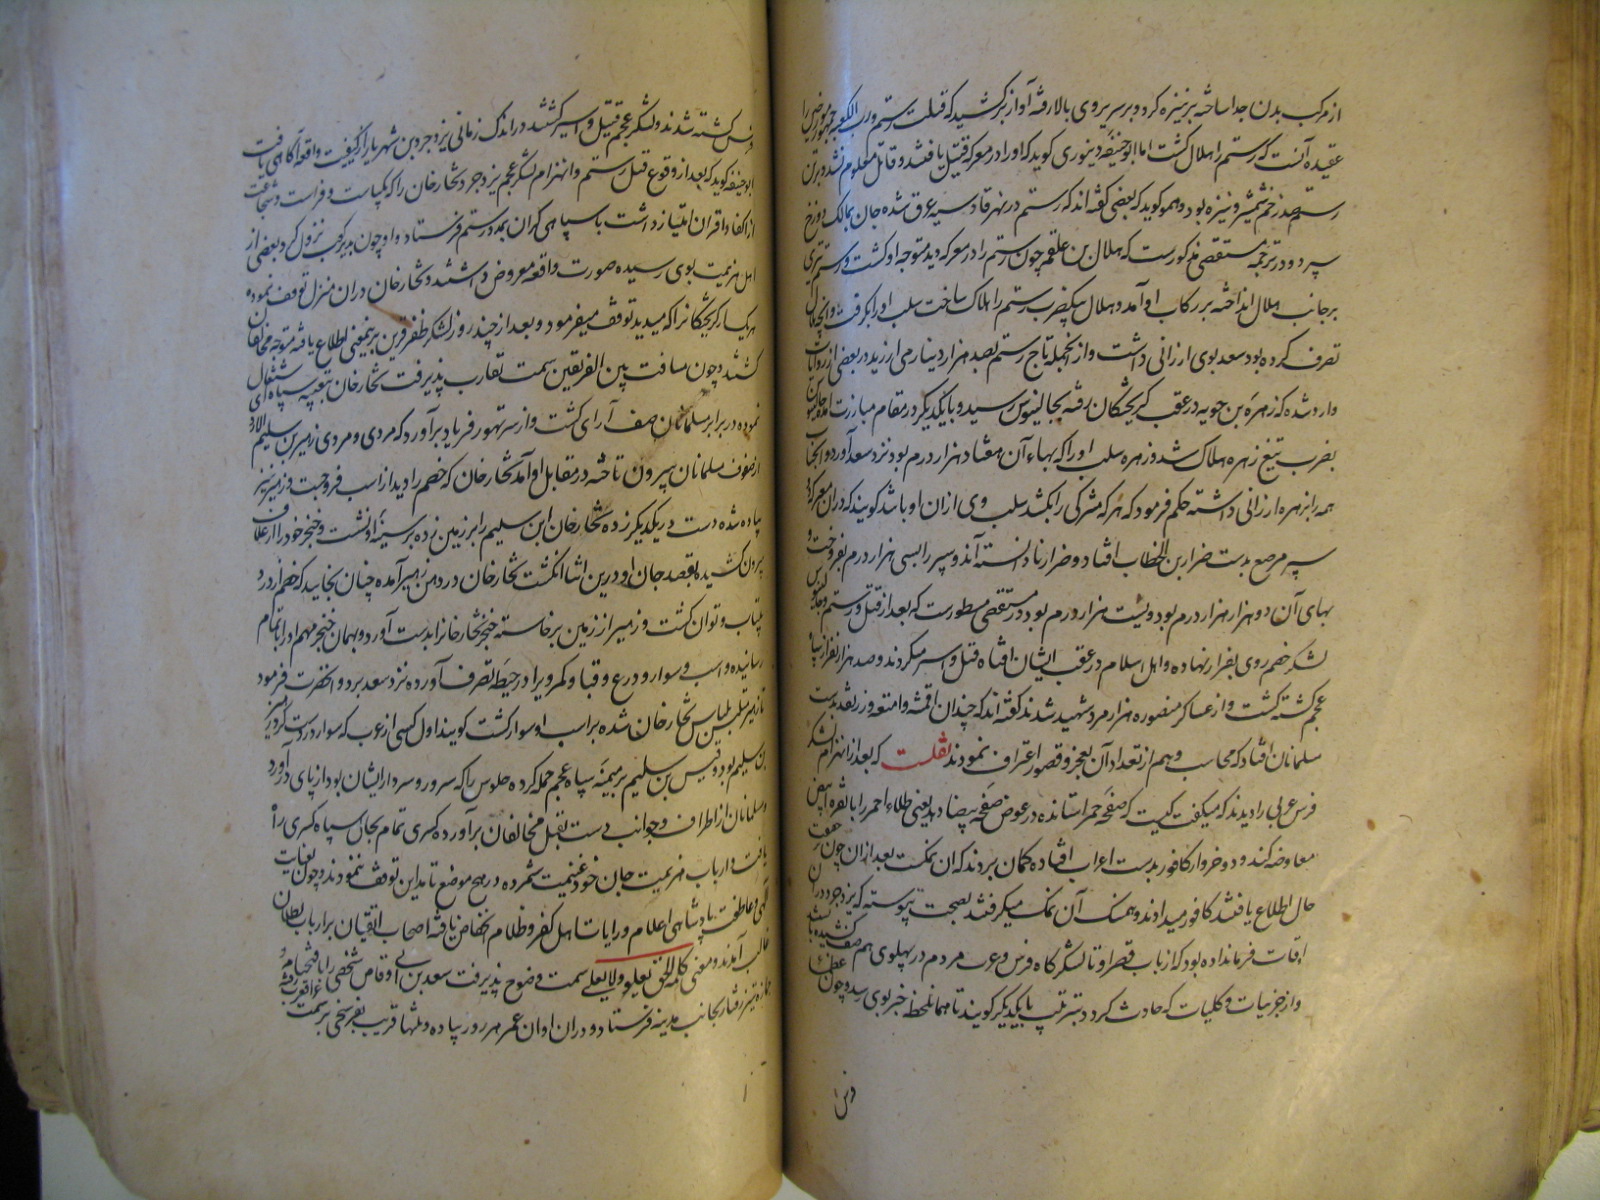 از مرکب بدن جدا ساخته بر نیزه کرد و بر سریر وی بالا رفته آواز برکشید که قتلت رستم و رب الکعبه جمهور مورخین را
عقیده آنست که رستم را هلال کشت اما ابو حنیفه دینوری کوید که او را در معرکه قتیل یافتند و قاتل معلوم نشد و بر تن
رستم صد زخم شمشیر و نیزه بود و همو کوید که بعضی کفته اند که رستم در نهر قادسیه غرق شده جان بمالک دوزخ
سپرد و در ترجمه مستقصی مذکورست که هلال بن علقمه چون رستم را در معرکه دید متوجه او کشت و رستم تیری
بر جانب هلال انداخته بر رکاب او آمد و هلال بیکضرب رستم را هلاک ساخت سلب او را بکرفت و آنچه هلال
تصرف کرده بود سعد بوی ارزانی داشت و از آنجمله تاج رستم بصد هزار دینار می ارزید در بعضی از روایات
وارد شده که زهره بن جویه در عقب کریختکان رفته بجالینوس رسید و با یکدیکر در مقام مبارزت آمده جالینوس
بضرب تیغ زهره هلاک شد و زهره سلب او را که بهاء آن هفتاد هزار درم بود نزد سعد آورد و آنجناب
همه را بزهره ارزانی داشته حکم فرمود که هر که مشرکی را بکشد سلب وی از ان او باشد کویند که در ان معرکه
سپر مرصع بدست ضرار بن الخطاب افتاد و ضرار نادانسته آن دو سپر را بسی هزار درم بفروخت و
بهای آن دو هزار هزار درم بود و بیست هزار درم بود در مستقصی مسطورست که بعد از قتل رستم و جالینوس
لشکر خصم روی بفرار نهاده و اهل اسلام در عقب ایشان افتاده قتل و اسر میکردند و صد هزار نفر از سپاه
عجم کشته کشت و از عساکر منصوره هزار مرد شهید شدند کفته اند که چندان اقمشه و امتعه و زر نقد بدست
مسلمانان افتاد که محاسب وهم از تعداد آن بعجز و قصور اعتراف نمودند نقلست که بعد از انهزام لشکر
فرس عربی را دیدند که میکفت کیست که صفحه حمرا ستانده در عوض صفحه بیضا دهد یعنی طلاء احمر را با نقره ابیض
معاوضه کند و دو خروار کافور بدست اعراب افتاده کمان بردند که ان نمکست بعد از ان چون بر حقیقت
حال اطلاع یافتند کافور میدادند و همسنک آن نمک میکرفتند بصحت پیوسته که یزدجرد در ان
اوقات فرمان داده بود که از باب قصر او تا لشکرکاه فرس و عرب مردم در پهلوی هم صف کشیده باشند
و از جزییات و کلیات که حادث کردد بترتیب با یکدیکر کویند تا همانلحظه خبر بوی رسد و چون عظما
فرس
فرس کشته شدند و لشکر عجم قتیل و اسیر کشتند در اندک زمانی یزدجرد بن شهریار از کیفیت واقعه آکاهی یافت
ابو حنیفه کوید که بعد از وقوع قتل رستم و انهزام لشکر عجم یزدجرد نخارخان را که بکیاست و فراست و شجاعت
از اکفا و اقران امتیاز داشت با سپاهی کران بمدد رستم فرستاد و او چون بدیر کعب نزول کرد بعضی از
اهل هزیمت بوی رسیده صورت واقعه معروض داشتند و نخارخان در ان منزل توقف نموده
هر یک از کریختکانرا که میدید توقف میفرمود و بعد از چند روز لشکر ظفر قرین برینمعنی اطلاع یافته متوجه مخالفان
کشتند و چون مسافت بین الفریقین سمت تقارب پذیرفت نخارخان بتعبیه سپاه اشتغال
نموده در برابر مسلمانان صف آرای کشت و از سر تهور فریاد برآورد که مردی و مردی زهیر بن سلیم الازدی
از صفوف مسلمانان بیرون تاخته در مقابل او آمد نخارخان که خصم را دید از اسب فرو جست و زهیر نیز
پیاده شده دست در یکدیکر زده نخارخان ابن سلیم را بر زمین زده بر سینه او نشست و خنجر خود را از غلاف
بیرون کشیده بقصد جان او درین اثنا انکشت نخارخان در دهن زهیر آمده چنان بخایید که خصم از درد
بیتاب و توان کشت و زهیر از زمین برخاسته خنجر نخارخانرا بدست آورد و بهمان خنجر مهم او را باتمام
رسانیده و اسب و سوار و درع و قبا و کمر ویرا در حیطه تصرف آورده نزد سعد برد و آنحضرت فرمود
تا زهیر متلبس بلباس نخارخان شده بر اسب او سوار کشت کویند اول کسی از عرب که سوار در دست کرد زهیر
بن سلیم بود و قیس بن سلیم بر میمنه سپاه عجم حمله کرده جلوس را که سرور و سردار ایشان بود از پای درآورد
و مسلمانان از اطراف و جوانب دست بقتل مخالفان برآورده کسری تمام بحال سپاه کسری راه
یافت و ارباب هزیمت جان خود غنیمت شمرده در هیچ موضع تا مداین توقف ننمودند و چون بعنایت
الهی و عاطفت پادشاهی اعلام و رایات اهل کفر و ظلام انخفاض یافته اصحاب ایقان بر ارباب بطلان
غالب آمدند و معنی کلمه الحق یعلو و لا یعلی سمت وضوح پذیرفت سعد بن ابی وقاص شخصی را با فتحنامه
جمازه تیز رفتار بجانب مدینه فرستاد و در ان اوان عمر هر روز پیاده و تنها قریب بفرسخی بر سمت عراق میرفته